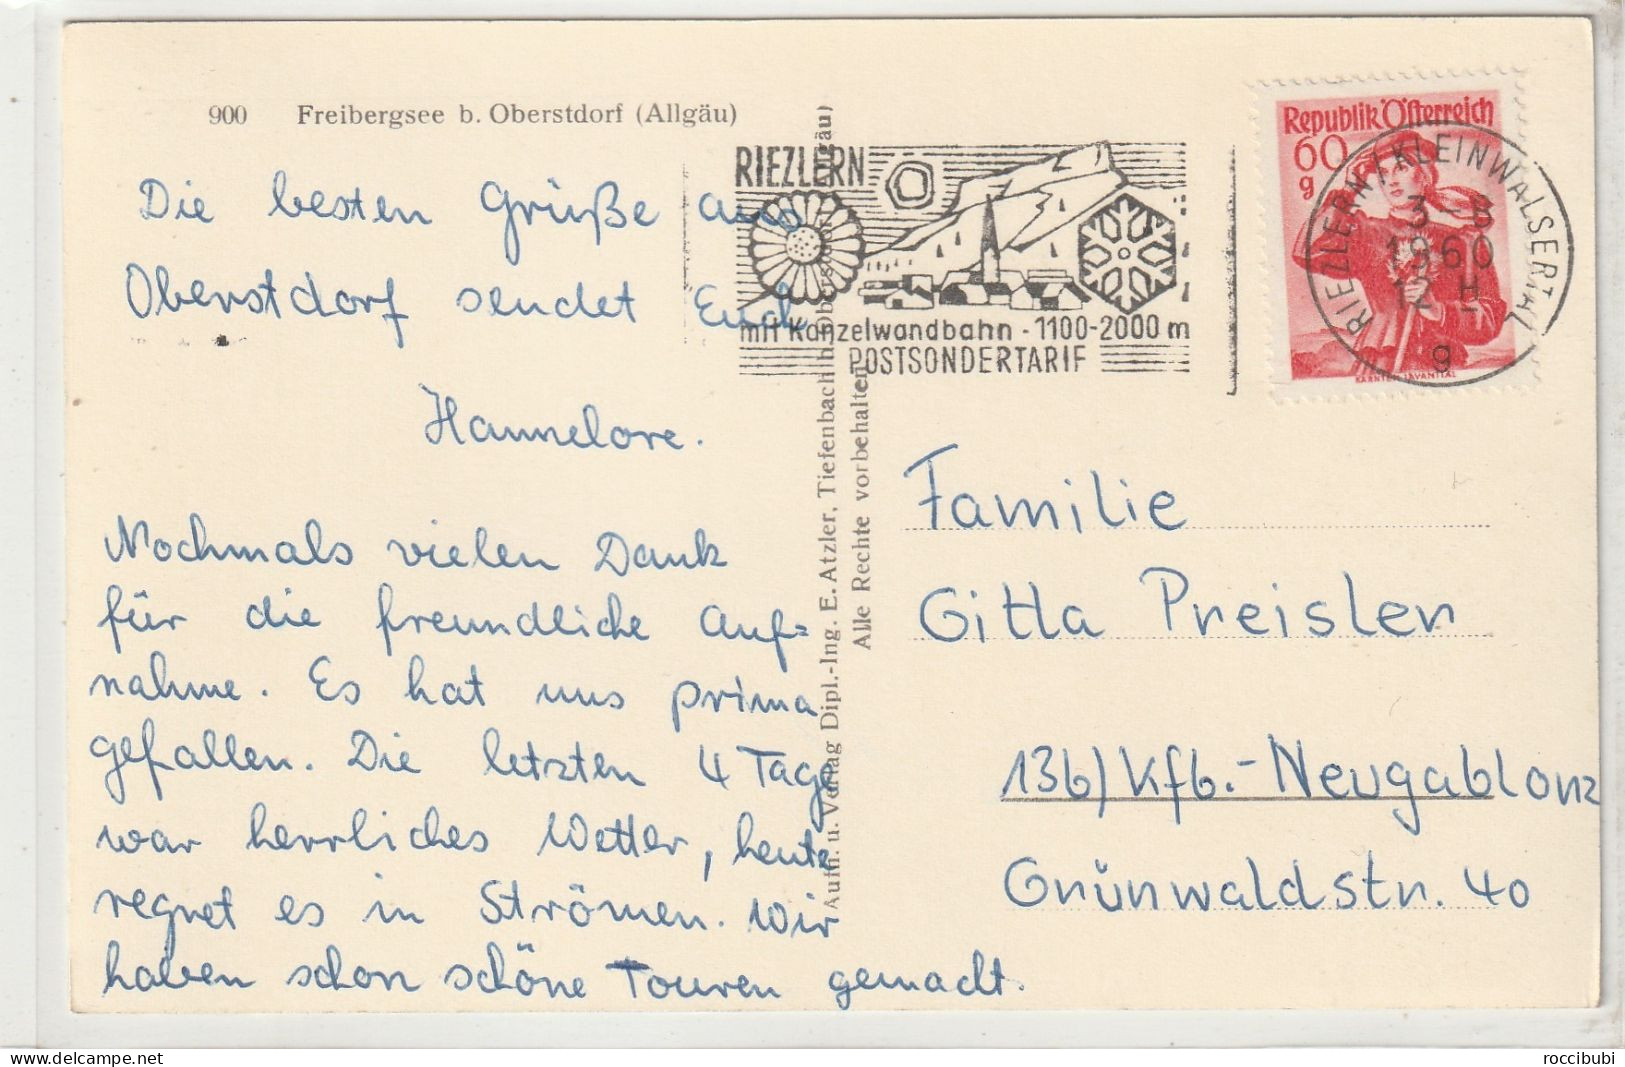 900 Freibergsee b. Oberstdorf (Allgäu)
Die besten Grüße aus
Oberstdorf sendet Euch
Hannelore.
Nochmals vielen Dank
für die freundliche Auf=
nahme. Es hat uns prima
gefallen. Die letzten 4 Tage
war herrliches Wetter, heute
regnet es in Strömen. Wir
haben schon schöne Touren gemacht.
Aufn. u. Verlag Dipl.-Ing. E. Atzler, Tiefenbach b. Oberstdorf (Allgäu)
Alle Rechte vorbehalten
RIEZLERN
mit Kanzelwandbahn - 1100-2000 m
POSTSONDERTARIF
Republik Österreich
60
g
KÄRNTEN, LAVANTTAL
RIEZLERN / KLEINWALSERTAL
1960
g
Familie
Gitta Preisler
13b) Kfb.-Neugablonz
Grünwaldstr. 40
roccibubi